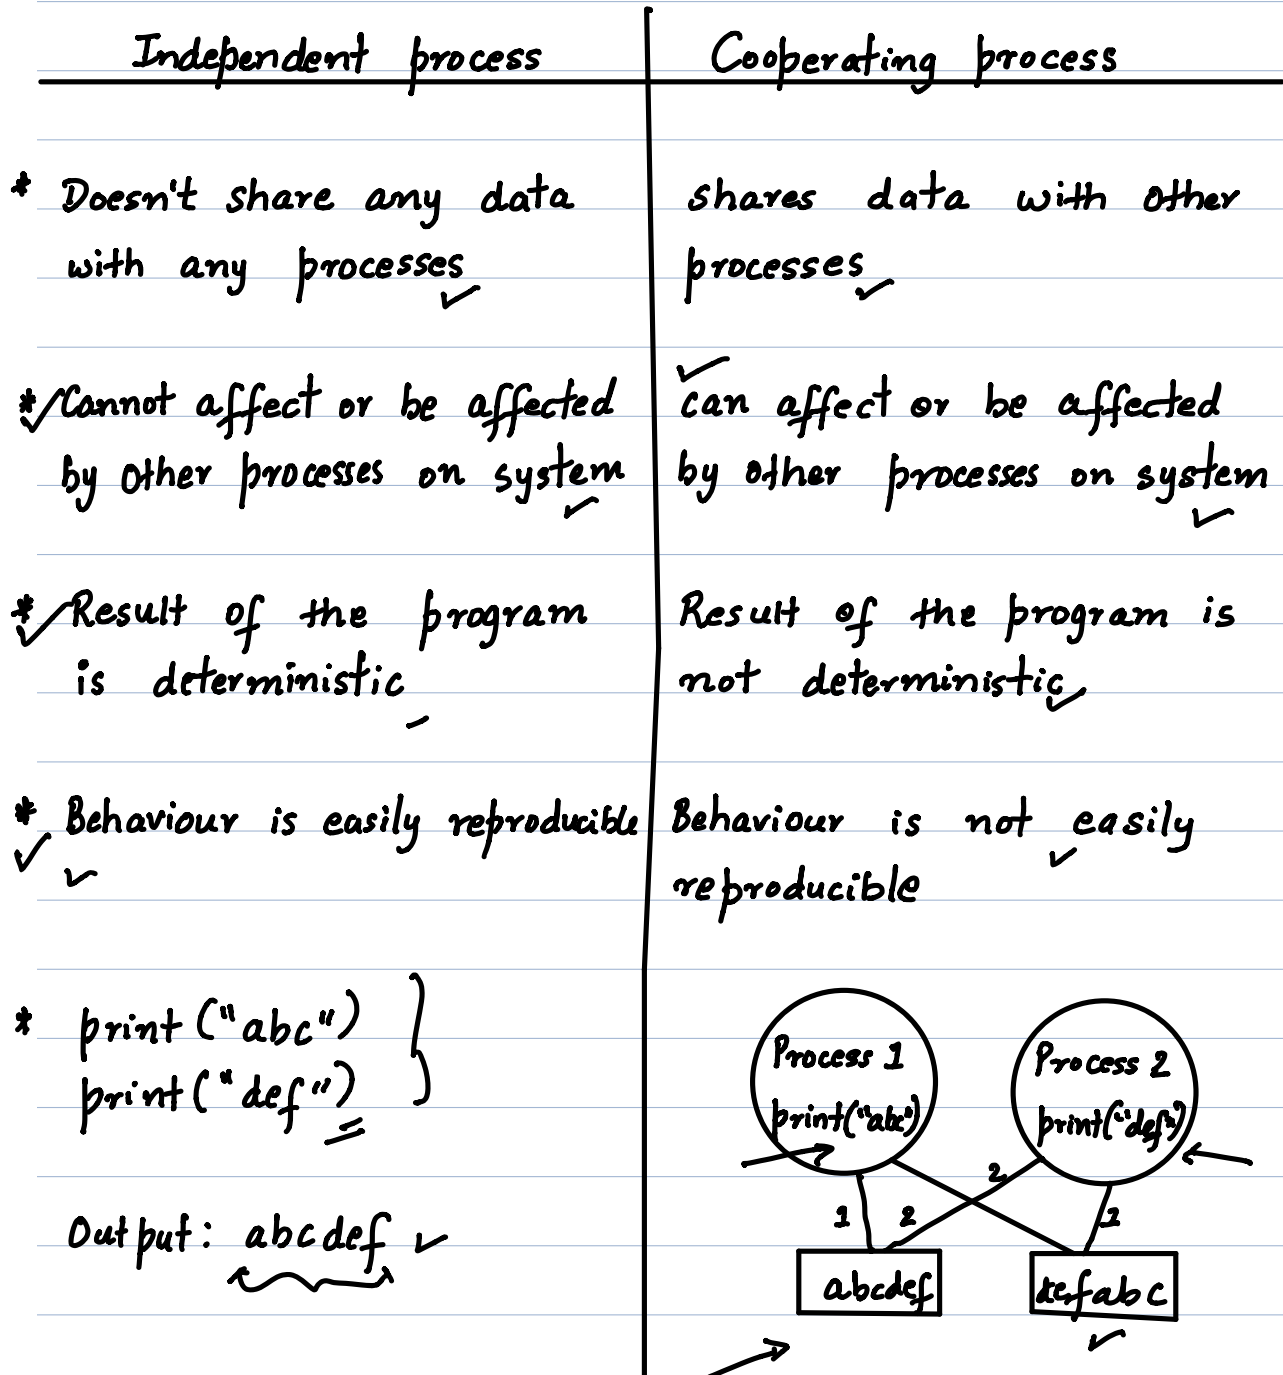 Independent process
Cooperating process
* Doesn't share any data
with any processes
shares data with other
processes
* Cannot affect or be affected
by other processes on system
can affect or be affected
by other processes on system
* Result of the program
is deterministic
Result of the program is
not deterministic
* Behaviour is easily reproducible
Behaviour is not easily
reproducible
* print ("abc")
print ("def")
Output: abcdef
Process 1
print("abc")
Process 2
print("def")
2
1 2 1
abcdef
defabc